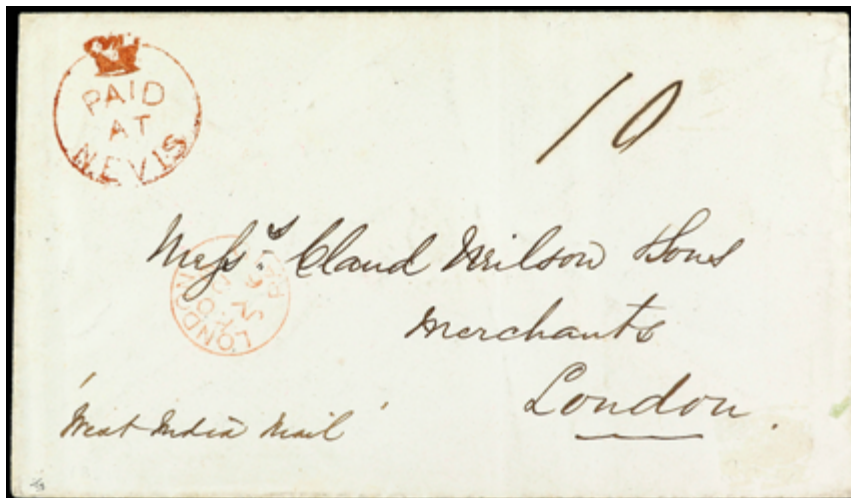 PAID
AT
NEVIS
10
Mess.s Claud Neilson Sons
Merchants
London.
LONDON
'West India Mail'